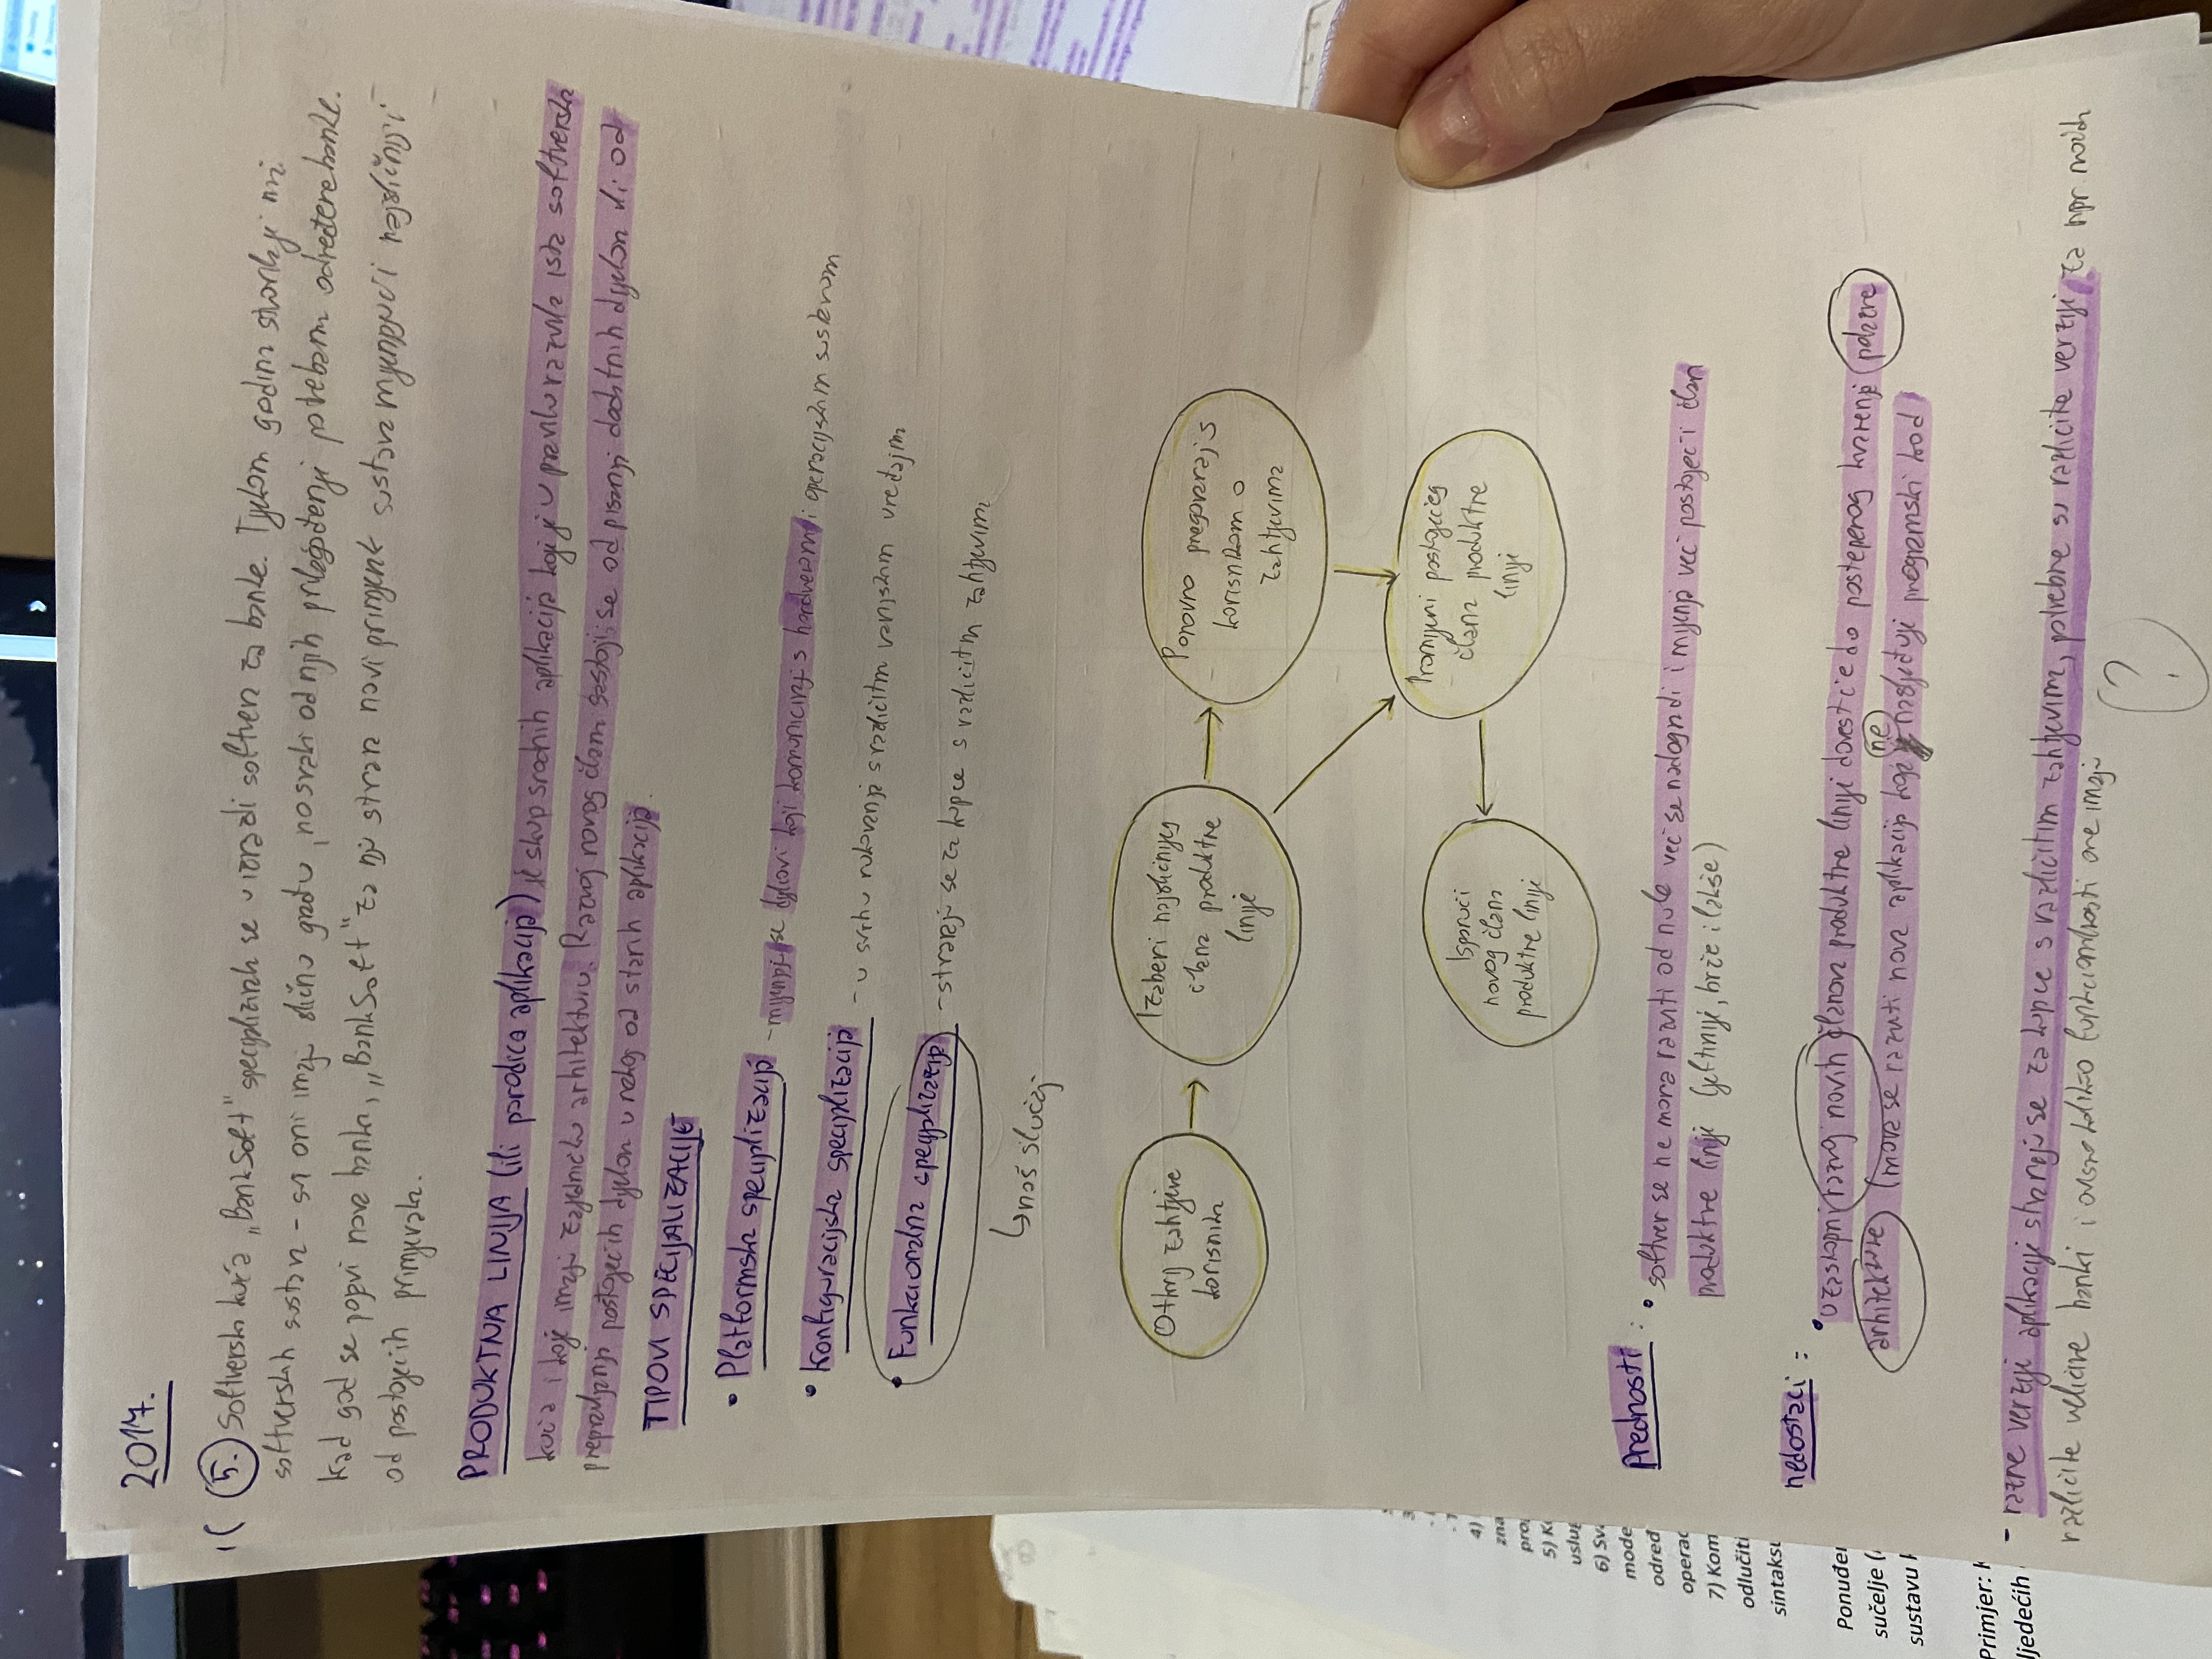 2017.
5. Softverska kuća „BankSoft" specijalizirala se u izradi softvera za banke. Tijekom godina stvorila je niz
softverskih sustava - svi oni imaju sličnu građu, no svaki od njih prilagođen je potrebama određene banke.
Kad god se pojavi nova banka, „BankSoft" za nju stvara novi primjerak sustava mijenjajući najsličniji
od postojećih primjeraka.
PRODUKTNA LINIJA (ili porodica aplikacija) je skup srodnih aplikacija koje je u pravilu razvila ista softverska
kuća i koje imaju zajedničku arhitekturu. Razvoj novog člana sastoji se od pisanja dodatnih dijelova ili od
prepravljanja postojećih dijelova u nekog od starih aplikacija.
TIPOVI SPECIJALIZACIJE
• Platformska specijalizacija - mijenjaju se dijelovi koji komuniciraju s hardverom i operacijskim sustavom
• Konfiguracijska specijalizacija - u svrhu rukovanja s različitim vanjskim uređajima
• Funkcionalna specijalizacija - stvaraju se za kupce s različitim zahtjevima
↳ naš slučaj
Otkrij zahtjeve
korisnika
Izaberi najsličnijeg
člana produktne
linije
Ponovno pregovaraj s
korisnikom o
zahtjevima
Promijeni postojećeg
člana produktne
linije
Isporuči
novog člana
produktne linije
Prednosti: • softver se ne mora razviti od nule već se nadograđi i mijenja već postojeći član
produktne linije (jeftinije, brže i lakše)
nedostaci: • uzastopni razvoj novih članova produktne linije dovest će do postepenog kvarenja polazne
arhitekture (mora se razviti nova aplikacija koja ne nasljeđuje programski kod
- razne verzije aplikacije stvaraju se za kupce s različitim zahtjevima, potrebne su različite verzije za npr.
različite veličine banki i ovisno koliko funkcionalnosti one imaju
?
4)
zna
5)
uslug
6) Sva
mode
odred
operac
7) Kom
odlučiti
Ponuđen
sučelje (
sustavu
Primjer:
ljedećih